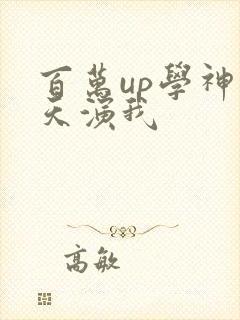 百萬up學神
天演我
高敏